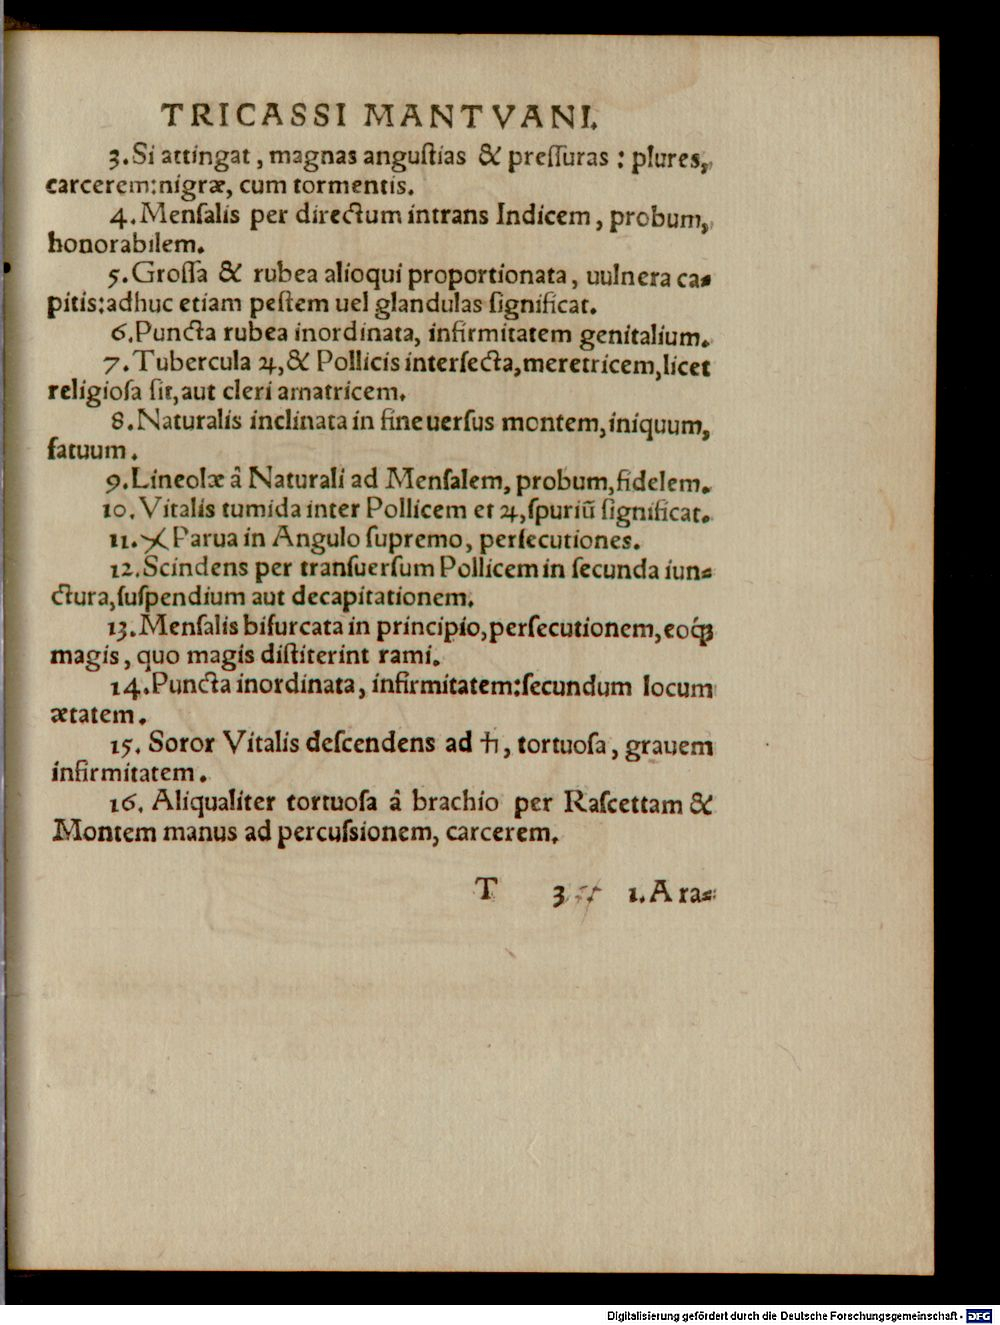 TRICASSI MANTVANI.
3. Si attingat, magnas anguſtias & preſſuras : plures,
carcerem: nigræ, cum tormentis.
4. Menſalis per directum intrans Indicem, probum,
honorabilem.
5. Groſſa & rubea alioqui proportionata, uulnera ca⸗
pitis: adhuc etiam peſtem uel glandulas ſignificat.
6. Puncta rubea inordinata, infirmitatem genitalium.
7. Tubercula ♃, & Pollicis interſecta, meretricem, licet
religioſa ſit, aut cleri amatricem.
8. Naturalis inclinata in fine uerſus montem, iniquum,
fatuum.
9. Lineolæ â Naturali ad Menſalem, probum, fidelem.
10. Vitalis tumida inter Pollicem et ♃, ſpuriũ ſignificat.
11. Parua in Angulo ſupremo, perſecutiones.
12. Scindens per tranſuerſum Pollicem in ſecunda iun⸗
ctura, ſuſpendium aut decapitationem.
13. Menſalis bifurcata in principio, perſecutionem, eoq́ꝫ
magis, quo magis diſtiterint rami.
14. Puncta inordinata, infirmitatem: ſecundum locum
ætatem.
15. Soror Vitalis deſcendens ad ♄, tortuoſa, grauem
infirmitatem.
16. Aliqualiter tortuoſa â brachio per Raſcettam &
Montem manus ad percuſsionem, carcerem.
T 3 1. A ra⸗
Digitalisierung gefördert durch die Deutsche Forschungsgemeinschaft - DFG